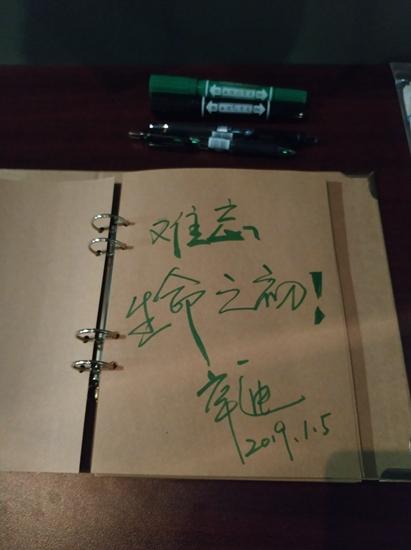 难忘
生命之初!
迪
2019.1.5